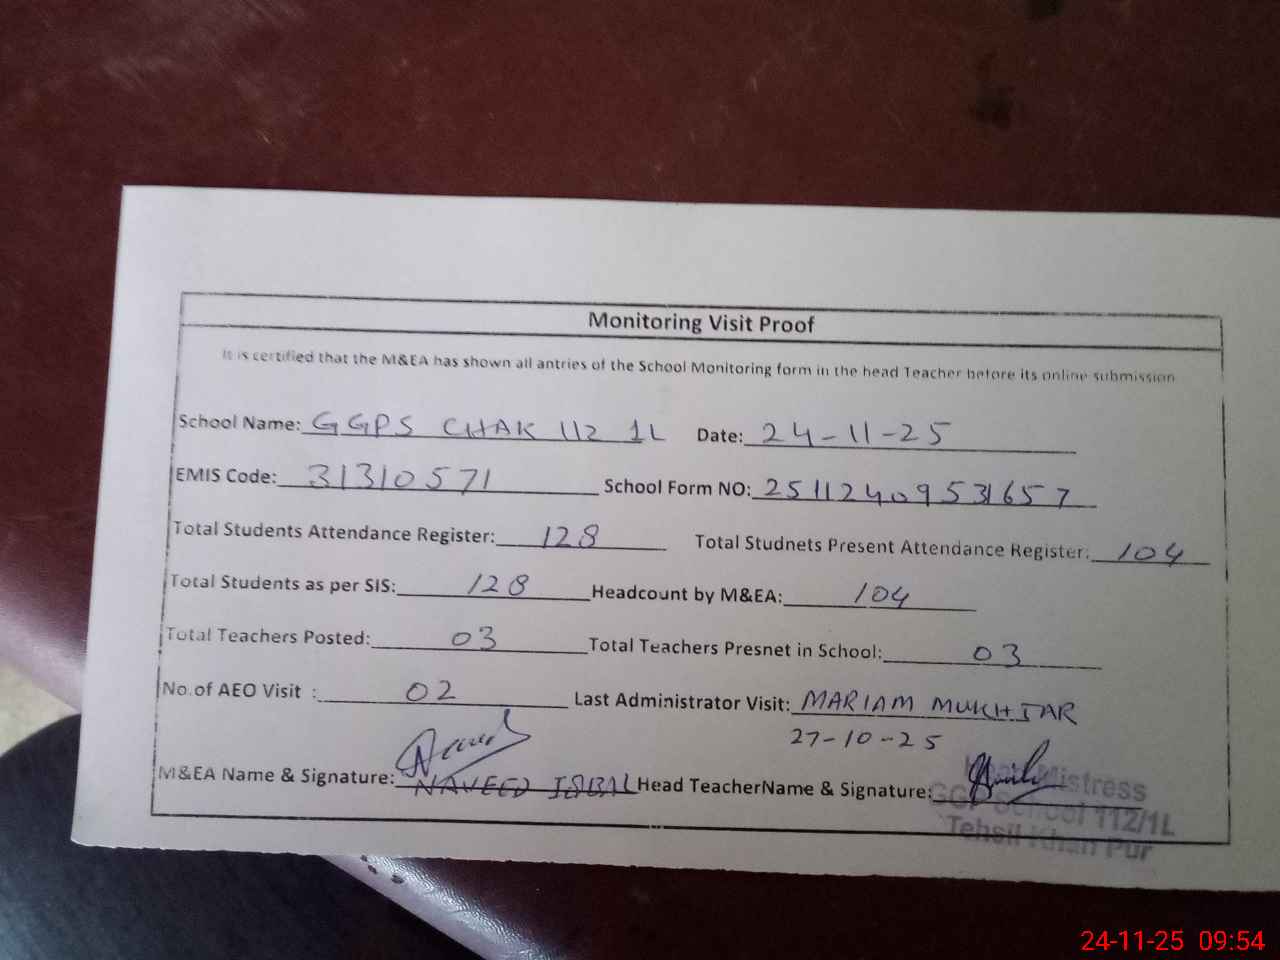 Monitoring Visit Proof
It is certified that the M&EA has shown all antries of the School Monitoring form in the head Teacher before its online submission
School Name: GGPS CHAK 112 1L Date: 24-11-25
EMIS Code: 31310571 School Form NO: 25112409531657
Total Students Attendance Register: 128 Total Studnets Present Attendance Register: 104
Total Students as per SIS: 128 Headcount by M&EA: 104
Total Teachers Posted: 03 Total Teachers Presnet in School: 03
No.of AEO Visit : 02 Last Administrator Visit: MARIAM MUKHTAR
27-10-25
M&EA Name & Signature: NAVEED IQBAL Head TeacherName & Signature:
Head Mistress
GGP School 112/1L
Tehsil Khan Pur
24-11-25 09:54